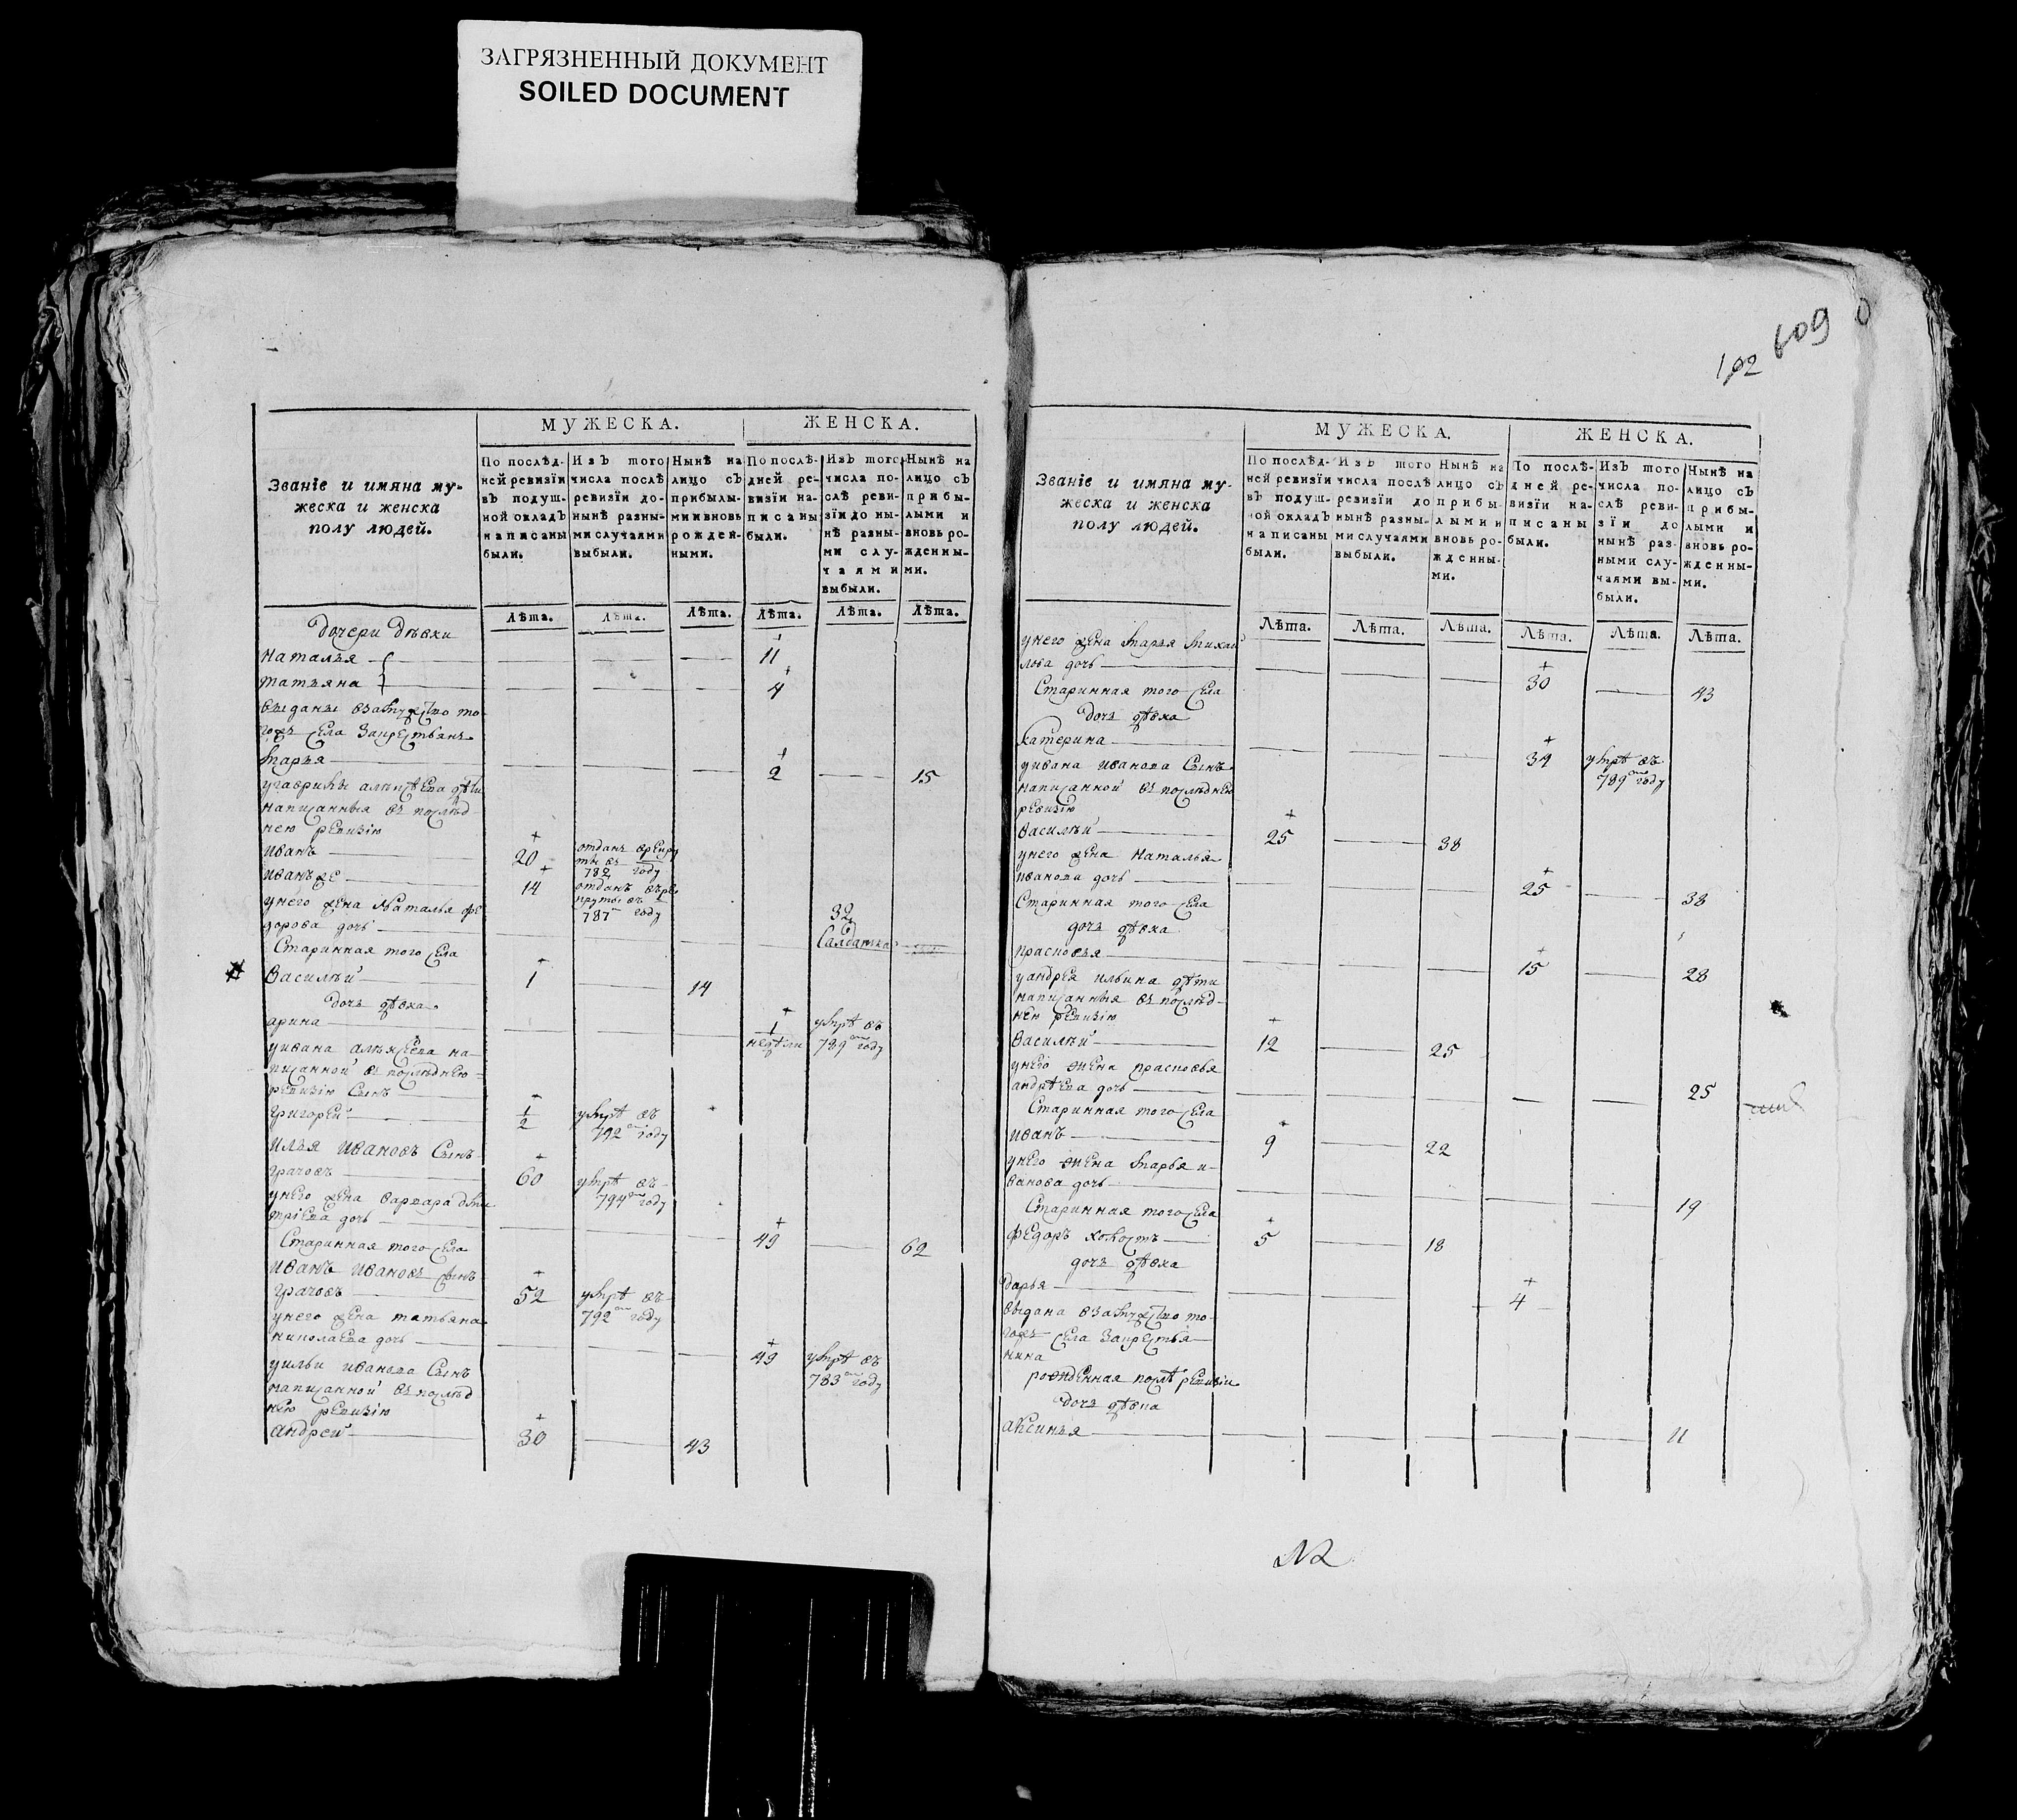 ЗАГРЯЗНЕННЫЙ ДОКУМЕНТ
SOILED DOCUMENT
МУЖЕСКА. ЖЕНСКА.
Званіе и имяна му-
жеска и женска
полу людей.
По послѣд-
ней ревизїи
въ подуш-
ной окладъ
написаны
были.
Изъ того
числа послѣ
ревизїи до-
нынѣ разны-
ми случаями
выбыли.
Нынѣ на
лицо съ
прибылы-
ми и вновь
рожден-
ными.
По послѣ-
дней ре-
визїи на-
писаны
были.
Изъ того
числа по-
слѣ реви-
зїи до ны-
нѣ разны-
ми слу-
чаями
выбыли.
Нынѣ на
лицо съ
прибы-
лыми и
вновь ро-
жденны-
ми.
Лѣта. Лѣта. Лѣта. Лѣта. Лѣта. Лѣта.
Дочери дѣвки
наталья 11
татьяна 4
выданы взамужство то-
гожъ села за крестьянъ
марья 2 15
у гаврилы алексѣева дѣти
написанныя въ послѣд-
нею ревизію
иванъ 20 отданъ врекру
ты въ 782 году
иванъ же 14 отданъ въ ре
круты въ 787 году
у него жена Наталья фе
дорова дочь 32 Салдатка
Старинная того села
василѣй 1 14
дочь дѣвка
арина 1 недѣли умрѣ въ 789 году
у ивана алексѣева на-
писанной въ послѣднею
ревизію сынъ
григорей 1/2 умрѣ въ 792 году
илья ивановъ сынъ
грачовъ 60 умрѣ въ 794 году
у него жена варвара дми
тріева дочь 49 62
Старинная того села
иванъ ивановъ сынъ
грачовъ 52 умрѣ въ 792 году
у него жена татьяна
николаева дочь 49 умрѣ въ 783 году
у ильи иванова сынъ
написанной въ послѣд
нею ревизію
андрей 30 43
609
192
МУЖЕСКА. ЖЕНСКА.
Званіе и имяна му-
жеска и женска
полу людей.
По послѣд-
ней ревизїи
въ подуш-
ной окладъ
написаны
были.
Изъ того
числа послѣ
ревизїи до
нынѣ разны-
ми случаями
выбыли.
Нынѣ на
лицо съ
прибы-
лыми и
вновь ро-
жденны-
ми.
По послѣ-
дней ре-
визїи на-
писаны
были.
Изъ того
числа по-
слѣ реви-
зїи до
нынѣ раз-
ными слу-
чаями вы-
были.
Нынѣ на
лицо съ
прибы-
лыми и
вновь ро-
жденны-
ми.
Лѣта. Лѣта. Лѣта. Лѣта. Лѣта. Лѣта.
у него жена марья михай
лова дочь 30 43
Старинная того села
дочь дѣвка
катерина 34 умрѣ въ 789 году
у ивана иванова сынъ
написанной въ последнею
ревизію
василѣй 25 38
у него жена наталья
иванова дочь 25 38
Старинная того села
дочь дѣвка
прасковья 15 28
у андрея ильина дѣти
написанныя въ послѣд-
нею ревизію
василѣй 12 25
у него жена прасковья
андрѣева дочь 25
Старинная того села
иванъ 9 22
у него жена марья и-
ванова дочь 19
Старинная того села
федоръ холостъ 5 18
дочь дѣвка
дарья 4
выдана взамужство то-
гожъ села за крестья-
нина
рожденная послѣ ревизіи
дочь дѣвка
аксинья 11